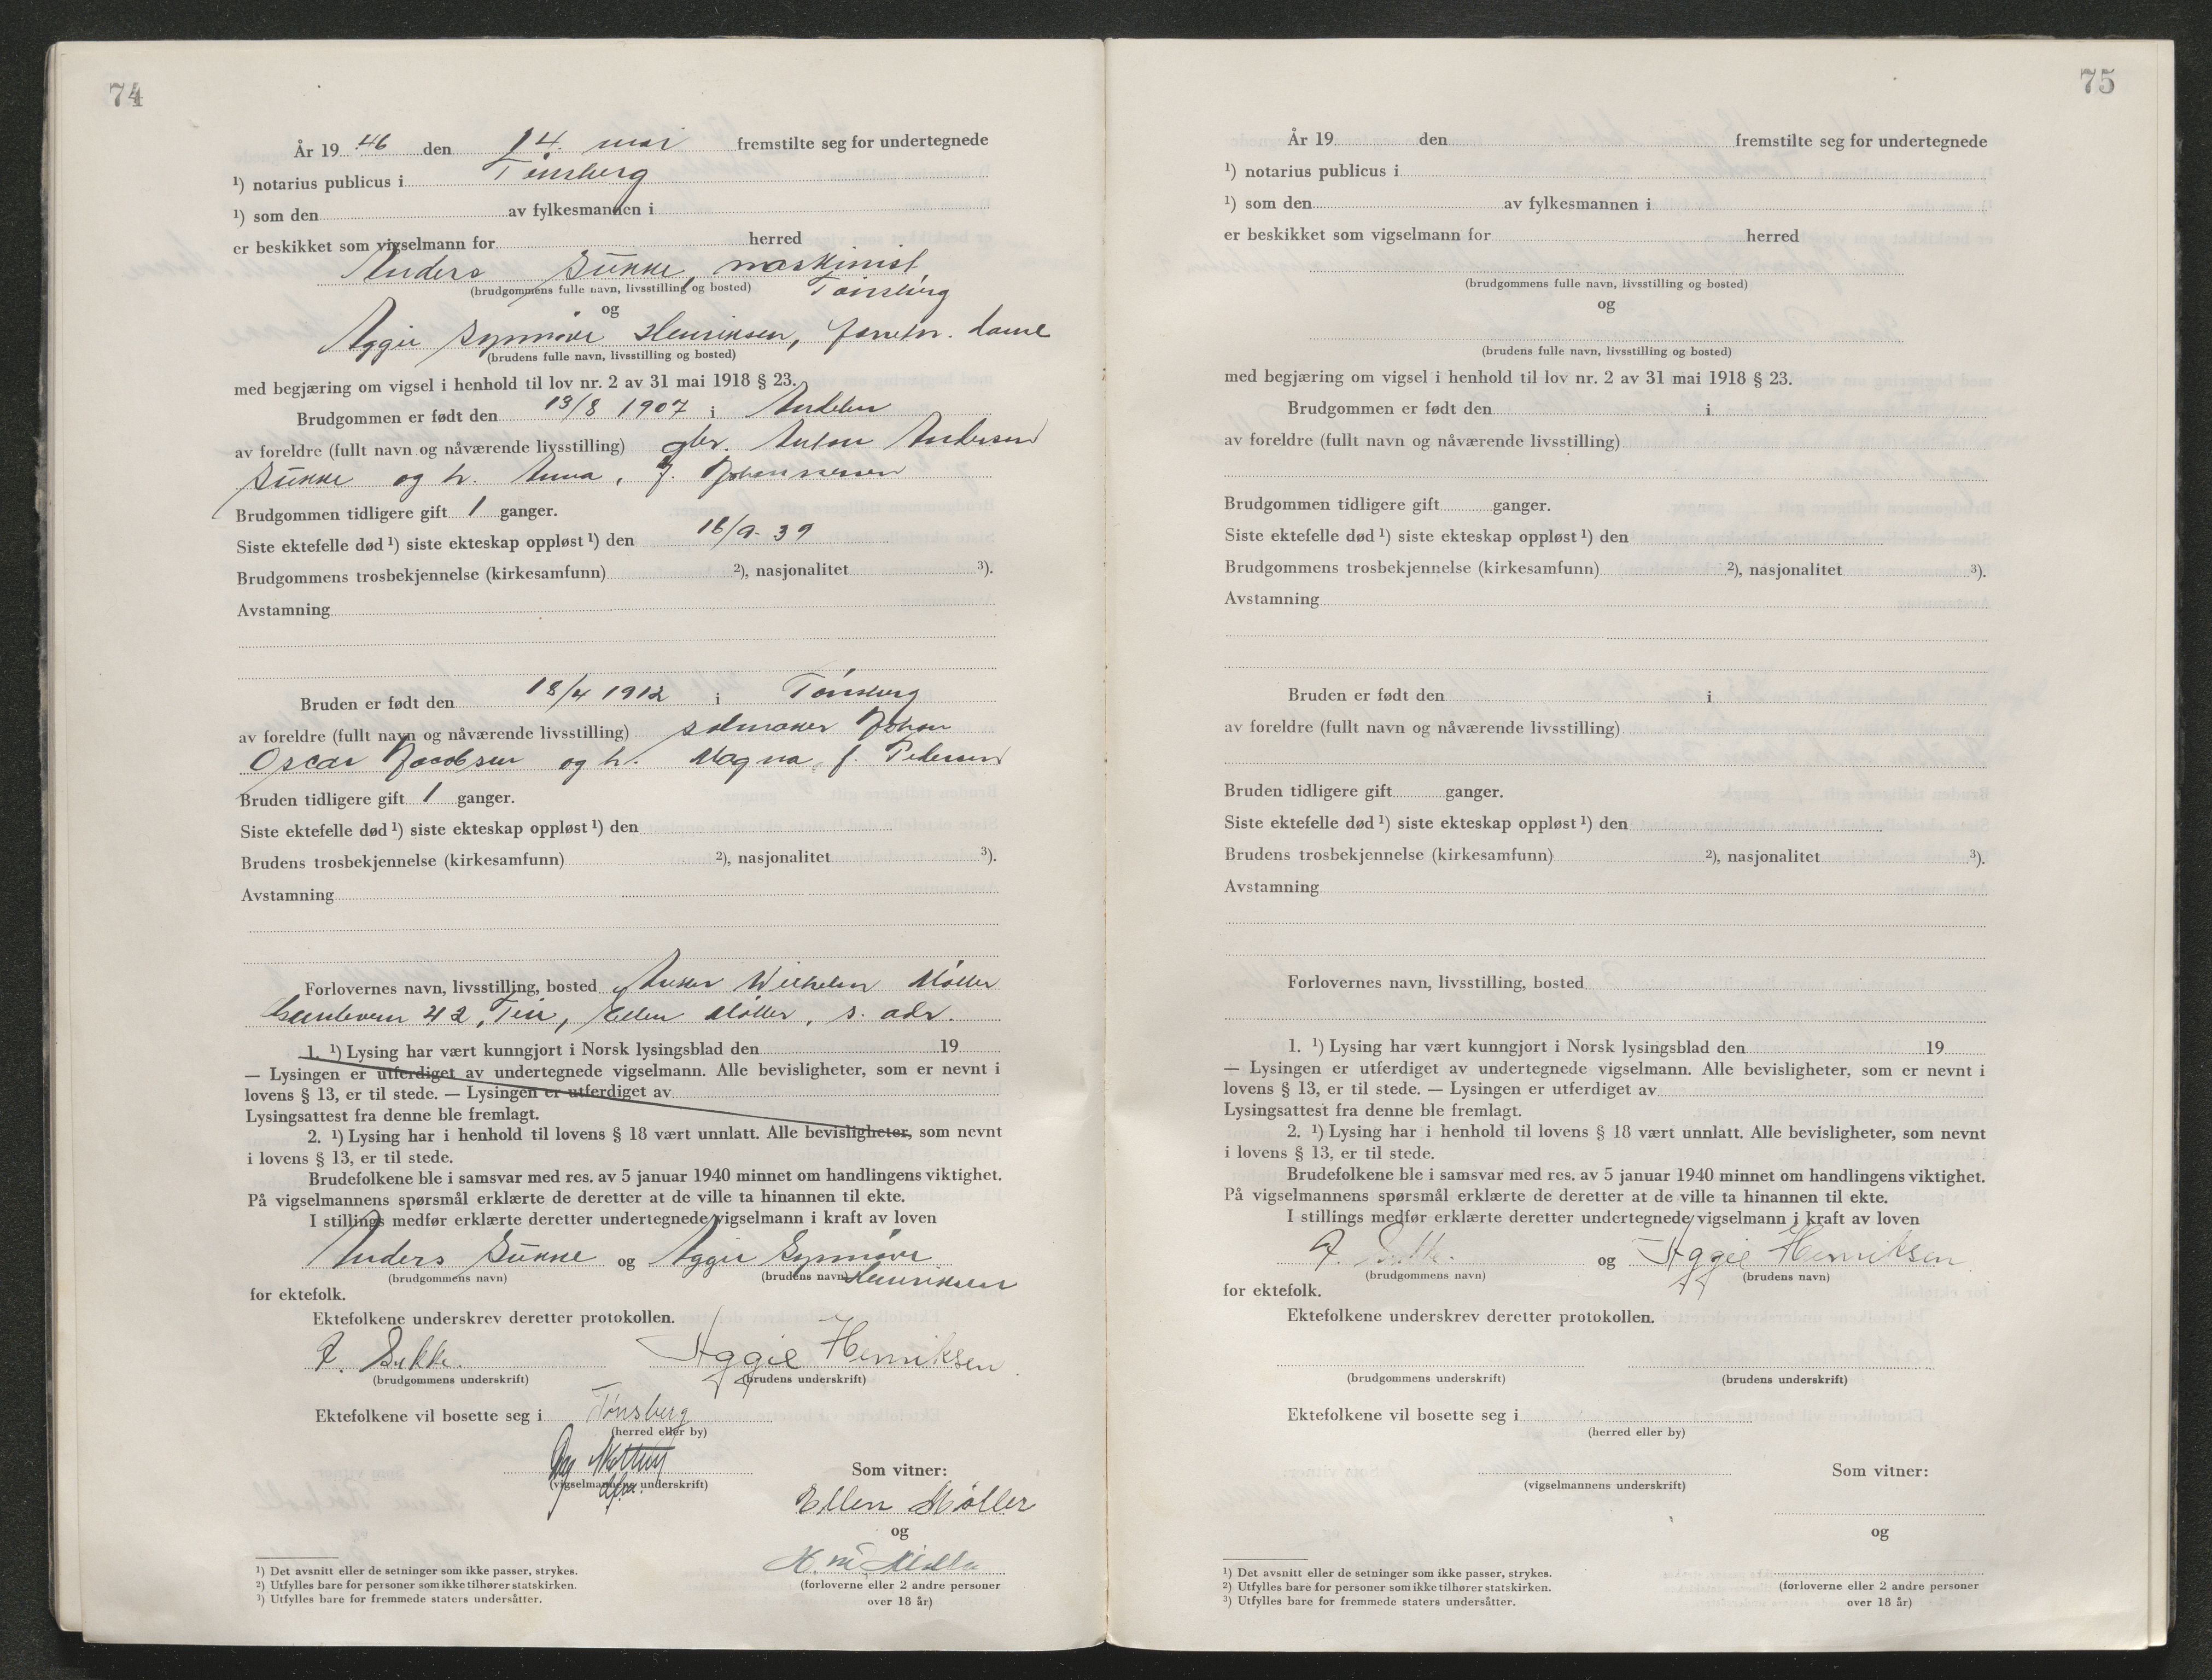 74
År 19 46 den 14. mai fremstilte seg for undertegnede
¹) notarius publicus i Tønsberg
¹) som den av fylkesmannen i
er beskikket som vigselmann for herred
Anders Sükke, maskinist,
(brudgommens fulle navn, livsstilling og bosted) Tønsberg
og
Aggie Synnøve Henriksen, forretn. dame
(brudens fulle navn, livsstilling og bosted)
med begjæring om vigsel i henhold til lov nr. 2 av 31 mai 1918 § 23.
Brudgommen er født den 13/8 1907 i
av foreldre (fullt navn og nåværende livsstilling) Anton Andersen
Sükke og h. Anna, f. Johannessen
Brudgommen tidligere gift 1 ganger.
Siste ektefelle død ¹) siste ekteskap oppløst ¹) den 18/9-39
Brudgommens trosbekjennelse (kirkesamfunn) ²), nasjonalitet ³).
Avstamning
Bruden er født den 18/4 1912 i Tønsberg
av foreldre (fullt navn og nåværende livsstilling) salmaker Johan
Oscar Jacobsen og h. Magna, f. Pedersen
Bruden tidligere gift 1 ganger.
Siste ektefelle død ¹) siste ekteskap oppløst ¹) den
Brudens trosbekjennelse (kirkesamfunn) ²), nasjonalitet ³).
Avstamning
Forlovernes navn, livsstilling, bosted Wilhelm Møller
42, Ellen Møller, s. adr.
1. ¹) Lysing har vært kunngjort i Norsk lysingsblad den 19
— Lysingen er utferdiget av undertegnede vigselmann. Alle bevisligheter, som er nevnt i
lovens § 13, er til stede. — Lysingen er utferdiget av
Lysingsattest fra denne ble fremlagt.
2. ¹) Lysing har i henhold til lovens § 18 vært unnlatt. Alle bevisligheter, som nevnt
i lovens § 13, er til stede.
Brudefolkene ble i samsvar med res. av 5 januar 1940 minnet om handlingens viktighet.
På vigselmannens spørsmål erklærte de deretter at de ville ta hinannen til ekte.
I stillings medfør erklærte deretter undertegnede vigselmann i kraft av loven
Anders Sükke og Aggie Synnøve
(brudgommens navn) (brudens navn) Henriksen
for ektefolk.
Ektefolkene underskrev deretter protokollen.
A. Sukke. Aggie Henriksen
(brudgommens underskrift) (brudens underskrift)
Ektefolkene vil bosette seg i Tønsberg
(herred eller by)
(vigselmannens underskrift)
Som vitner:
Ellen Møller
og
(forloverne eller 2 andre personer
over 18 år)
¹) Det avsnitt eller de setninger som ikke passer, strykes.
²) Utfylles bare for personer som ikke tilhører statskirken.
³) Utfylles bare for fremmede staters undersåtter.
75
År 19 den fremstilte seg for undertegnede
¹) notarius publicus i
¹) som den av fylkesmannen i
er beskikket som vigselmann for herred
(brudgommens fulle navn, livsstilling og bosted)
og
(brudens fulle navn, livsstilling og bosted)
med begjæring om vigsel i henhold til lov nr. 2 av 31 mai 1918 § 23.
Brudgommen er født den i
av foreldre (fullt navn og nåværende livsstilling)
Brudgommen tidligere gift ganger.
Siste ektefelle død ¹) siste ekteskap oppløst ¹) den
Brudgommens trosbekjennelse (kirkesamfunn) ²), nasjonalitet ³).
Avstamning
Bruden er født den i
av foreldre (fullt navn og nåværende livsstilling)
Bruden tidligere gift ganger.
Siste ektefelle død ¹) siste ekteskap oppløst ¹) den
Brudens trosbekjennelse (kirkesamfunn) ²), nasjonalitet ³).
Avstamning
Forlovernes navn, livsstilling, bosted
1. ¹) Lysing har vært kunngjort i Norsk lysingsblad den 19
— Lysingen er utferdiget av undertegnede vigselmann. Alle bevisligheter, som er nevnt i
lovens § 13, er til stede. — Lysingen er utferdiget av
Lysingsattest fra denne ble fremlagt.
2. ¹) Lysing har i henhold til lovens § 18 vært unnlatt. Alle bevisligheter, som nevnt
i lovens § 13, er til stede.
Brudefolkene ble i samsvar med res. av 5 januar 1940 minnet om handlingens viktighet.
På vigselmannens spørsmål erklærte de deretter at de ville ta hinannen til ekte.
I stillings medfør erklærte deretter undertegnede vigselmann i kraft av loven
og Aggie Henriksen
(brudgommens navn) (brudens navn)
for ektefolk.
Ektefolkene underskrev deretter protokollen.
(brudgommens underskrift) (brudens underskrift)
Ektefolkene vil bosette seg i
(herred eller by)
(vigselmannens underskrift)
Som vitner:
og
(forloverne eller 2 andre personer
over 18 år)
¹) Det avsnitt eller de setninger som ikke passer, strykes.
²) Utfylles bare for personer som ikke tilhører statskirken.
³) Utfylles bare for fremmede staters undersåtter.